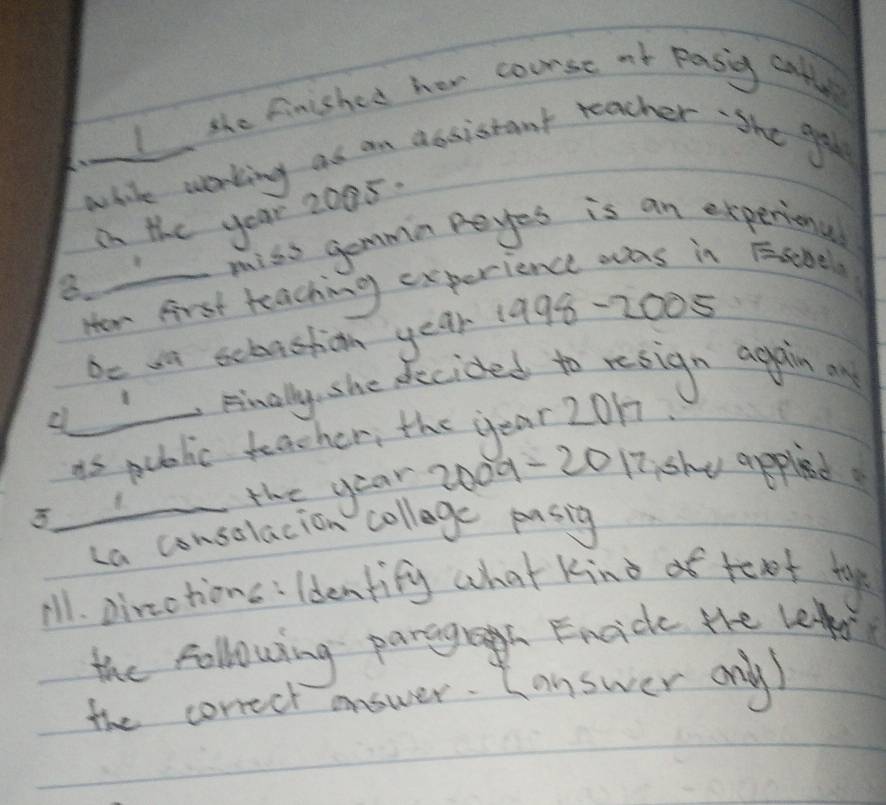 1 she finished her course at Pasig
while working as an assistant teacher. She
in the year 2005.
3. 1 miss gemma Reyes is an experienced
Her first teaching experience was in
De sa sebastian year 1998-2005
4 1 Finally, she decided to resign again and
as public teacher, the year 2017.
5 1 the year 2009-2017, she applied
La consolacion college pasig
III. Directions: Identify what kind of text
the following paragraph Encide the
the correct answer. (answer only)